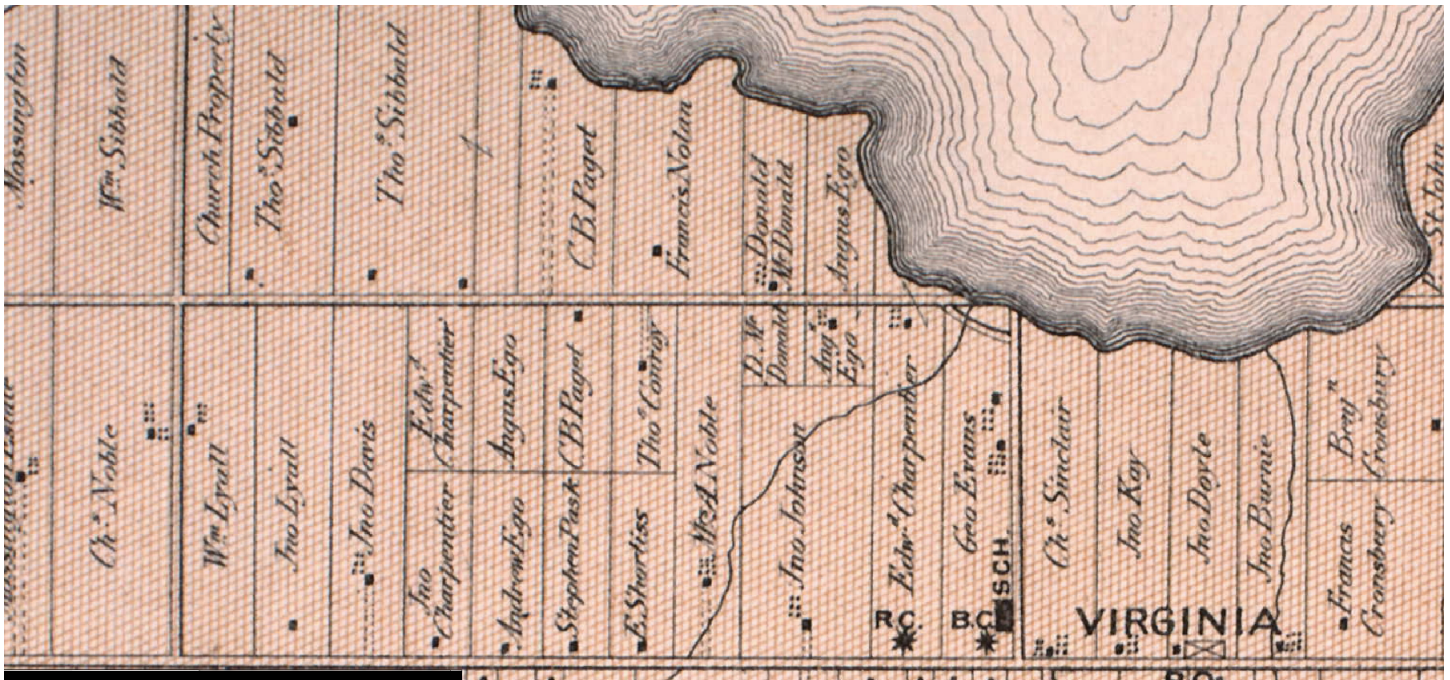 Mossington
Wm Sibbald
Church Property
Thos Sibbald
Thos Sibbald
C.B. Paget
Francis Nolan
Donald
McDonald
Angus Ego
St John
Chs Noble
Wm Lyall
Jno Lyall
Jno Davis
Edwd
Charpentier
Jno
Charpentier
Angus Ego
Andrew Ego
C.B. Paget
Stephen Pask
Thos Conroy
E. Shortiss
Noble
D. Mc
Donald
Angs
Ego
Jno Johnson
Edwd Charpentier
Geo Evans
SCH.
R.C.
B.C.
Chs Sinclair
Jno Kay
Jno Doyle
Jno Burnie
VIRGINIA
Benjn
Cronsbury
Francis
Cronsbury
P.O.